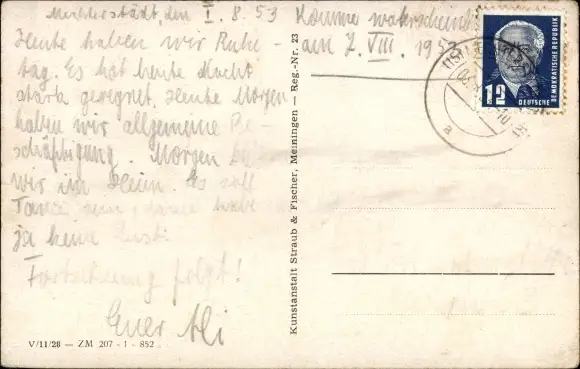 Mechterstädt, den 1. 8. 53
Heute haben wir Ruhe-
tag. Es hat heute Nacht
stark geregnet. Heute Morgen
haben wir allgemeine Be-
schäftigung. Morgen
wir im Heim. Es soll
Tanz sein, habe
ja keine Lust.
Fortsetzung folgt!
Euer Ali
V/11/28 — ZM 207 - 1 - 852
Kunstanstalt Straub & Fischer, Meiningen — Reg.-Nr. 23
Komme wahrscheinl.
am 7. VIII. 1953
12
DEUTSCHE
DEMOKRATISCHE REPUBLIK
a